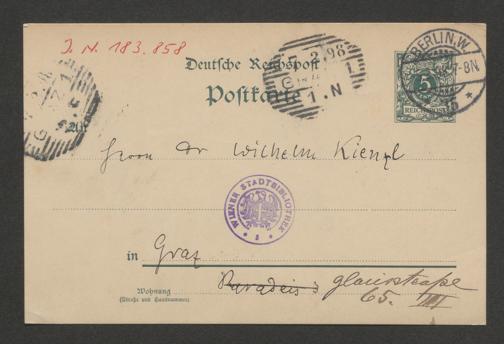 J. N. 183.858
Deutsche Reichspost
Postkarte
BERLIN, W.
7-8N
5
REICHSPOST
3.98
1.N
An
Herrn Dr Wilhelm Kienzl
WIENER STADTBIBLIOTHEK
in Graz
Wohnung
(Straße und Hausnummer)
Paradeis
65. III